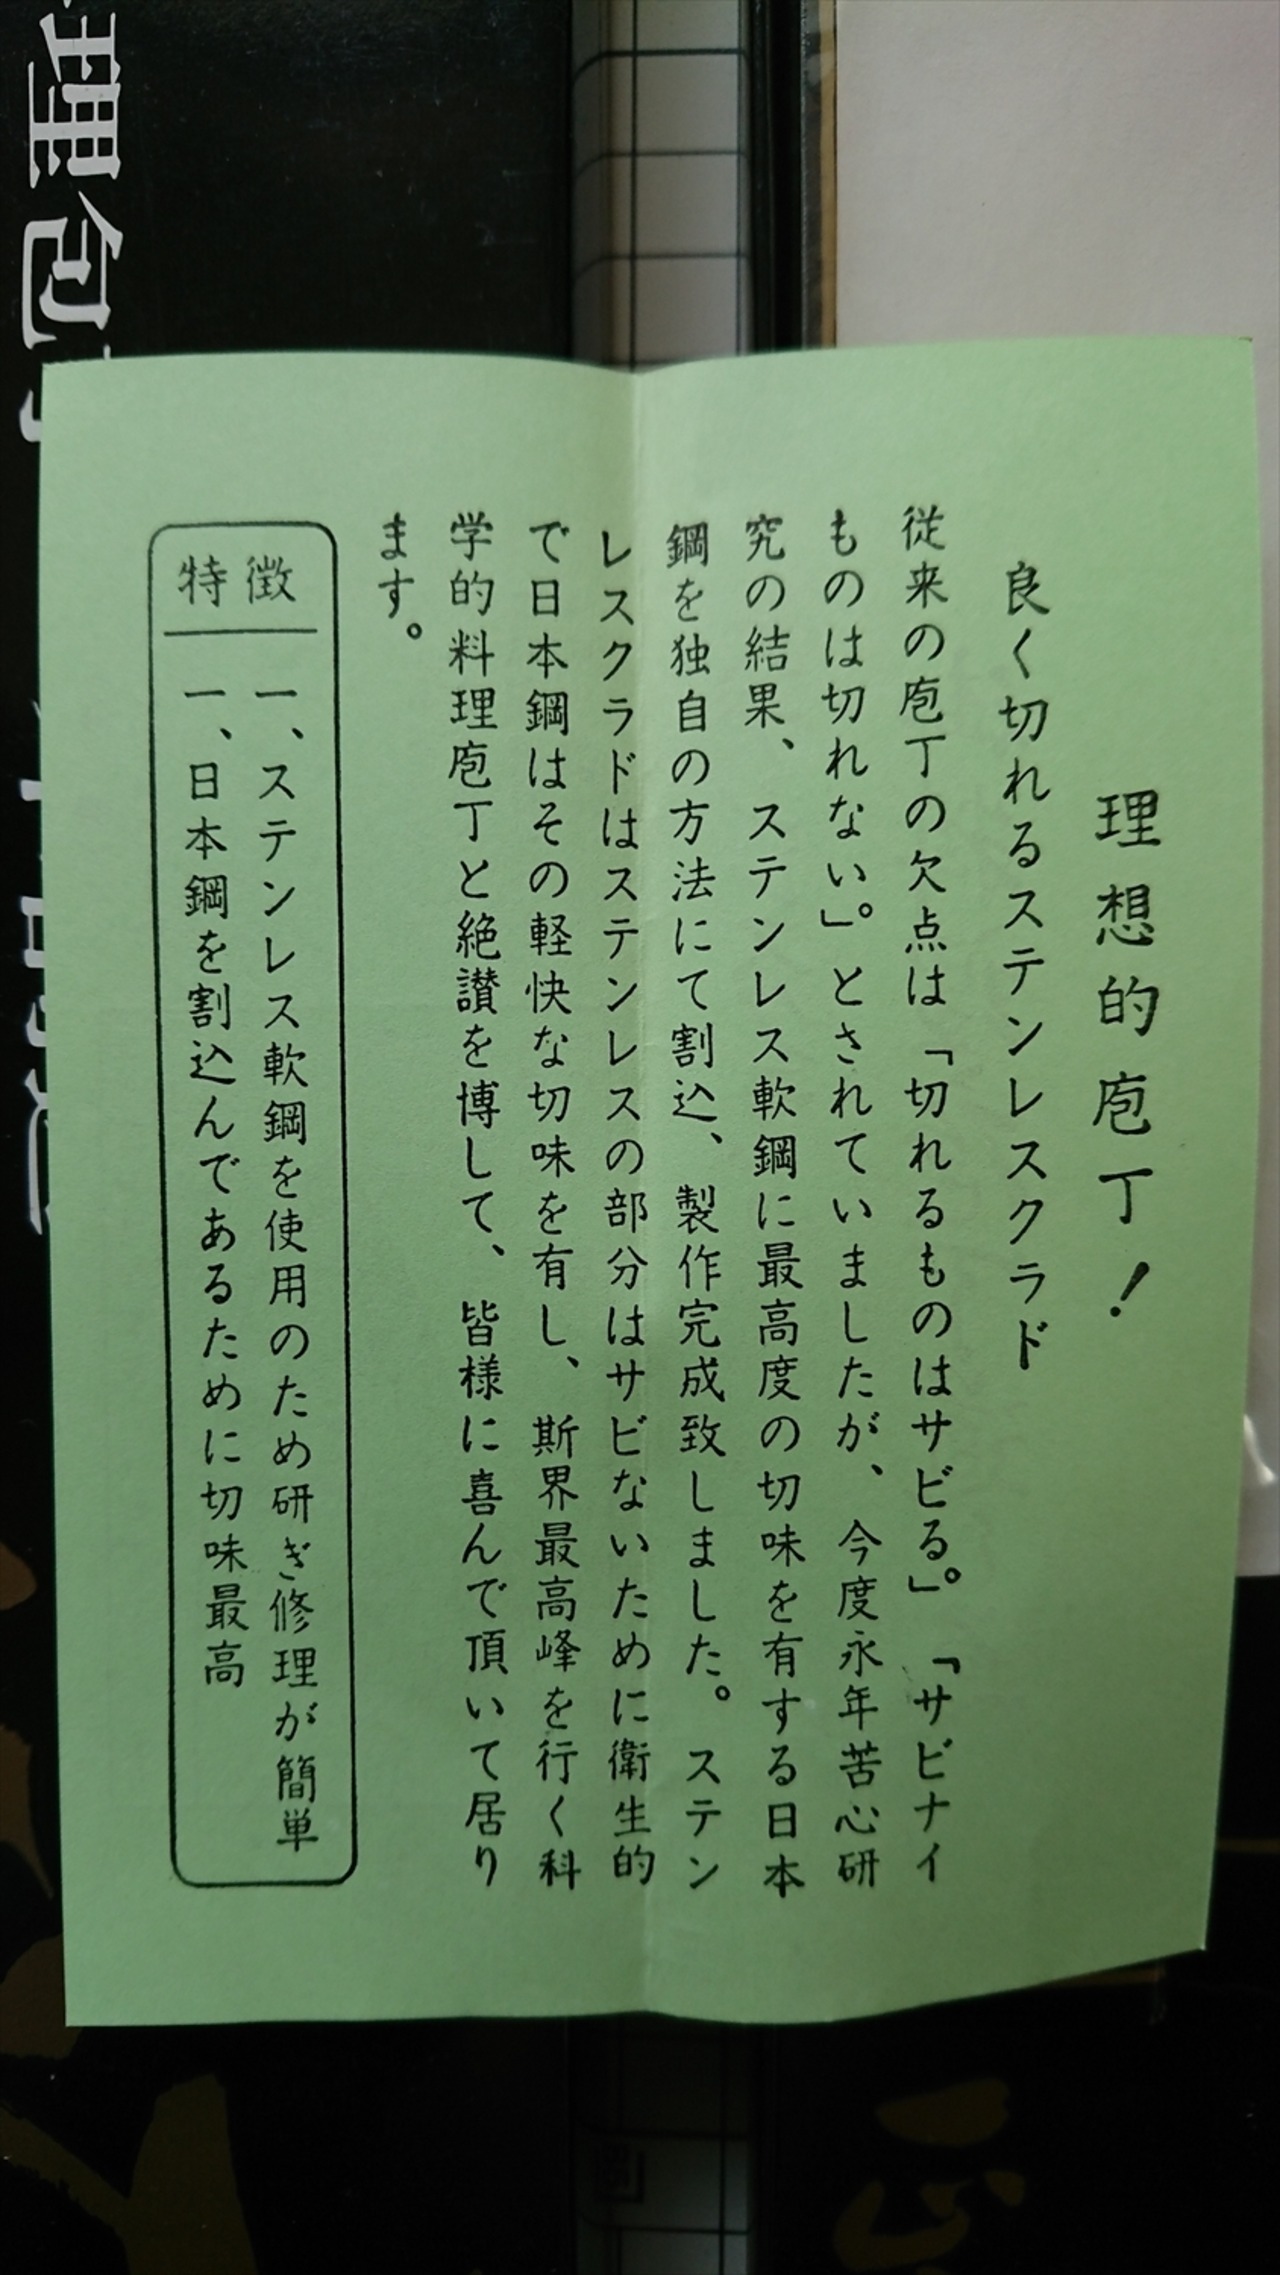 理想的庖丁！
良く切れるステンレスクラド
従来の庖丁の欠点は「切れるものはサビる。」「サビナイ
ものは切れない」。とされていましたが、今度永年苦心研
究の結果、ステンレス軟鋼に最高度の切味を有する日本
鋼を独自の方法にて割込、製作完成致しました。ステン
レスクラドはステンレスの部分はサビないために衛生的
で日本鋼はその軽快な切味を有し、斯界最高峰を行く科
学的料理庖丁と絶讃を博して、皆様に喜んで頂いて居り
ます。
特徴
一、ステンレス軟鋼を使用のため研ぎ修理が簡単
一、日本鋼を割込んであるために切味最高
理包